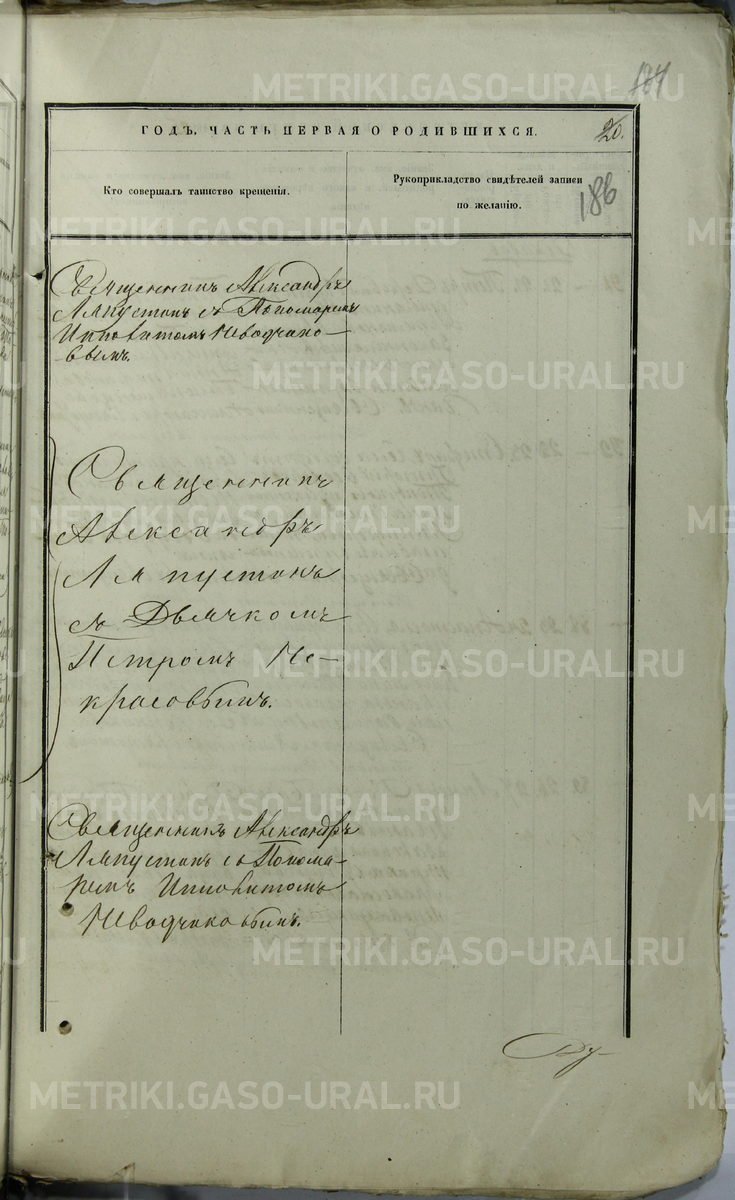 184
ГОДЪ, ЧАСТЬ ПЕРВАЯ О РОДИВШИХСЯ.
20.
Кто совершалъ таинство крещенія.
Рукоприкладство свидѣтелей записи
по желанію.
186
Священникъ Александръ
Ляпустинъ съ Пономаремъ
Ипполитомъ Неводчико-
вымъ.
Священникъ
Александръ
Ляпустинъ
съ Дьячкомъ
Петромъ Не-
красовымъ.
Священникъ Александръ
Ляпустинъ съ Понома-
ремъ Ипполитомъ
Неводчиковымъ.
METRIKI.GASO-URAL.RU